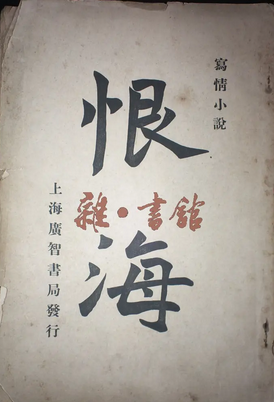 寫情小說
恨海
雜·書館
上海廣智書局發行